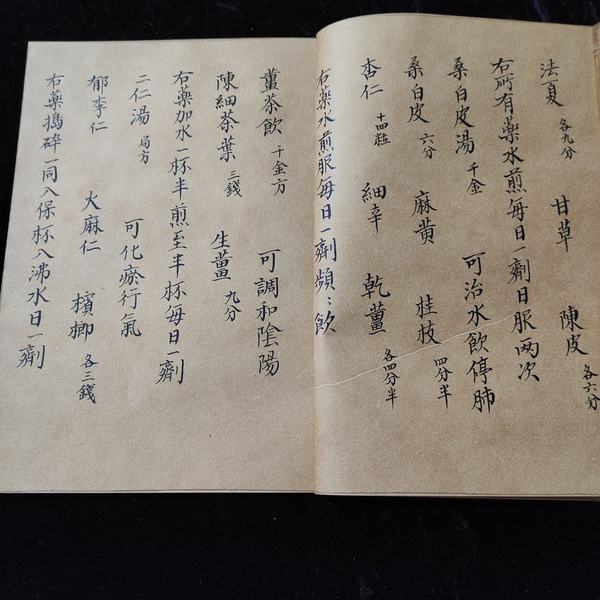 法夏 各九分 甘草 陳皮 各六分
右所有藥水煎每日一劑日服两次
桑白皮湯 千金 可治水飲停肺
桑白皮 六分 麻黄 桂枝 四分半
杏仁 十四粒 細辛 乾薑 各四分半
右藥水煎服每日一劑頻〻飲
薑茶飲 千金方 可調和陰陽
陳細茶葉 三錢 生薑 九分
右藥加水一杯半煎至半杯每日一劑
二仁湯 局方 可化瘀行氣
郁李仁 火麻仁 檳榔 各三錢
右藥搗碎一同入保杯入沸水日一劑